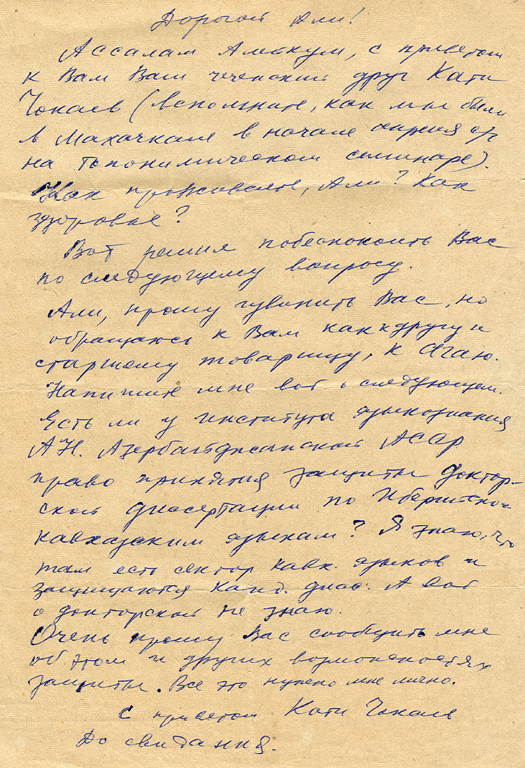 Дорогой Али!
Ассалам Алейкум, с приветом
к Вам Ваш чеченский друг Кати
Чокаев (вспомните, как мы были
в Махачкале в начале апреля с/г
на топонимическом семинаре).
Как проживаете, Али? Как
здоровье?
Вот решил побеспокоить Вас
по следующему вопросу.
Али, прошу извинить Вас, но
обращаюсь к Вам как к другу и
старшему товарищу, к Агаю.
Напишите мне вот о следующем.
Есть ли у института языкознания
АН. Азербайджанской АССР
право принятия защиты доктор-
ской диссертации по Иберийско-
кавказским языкам? Я знаю, что
там есть сектор кавк. языков и
защищаются канд. дисс. А вот
о докторской не знаю.
Очень прошу Вас сообщить мне
об этом и других возможностях
защиты. Все это нужно мне лично.
С приветом Кати Чокаев
До свидания.